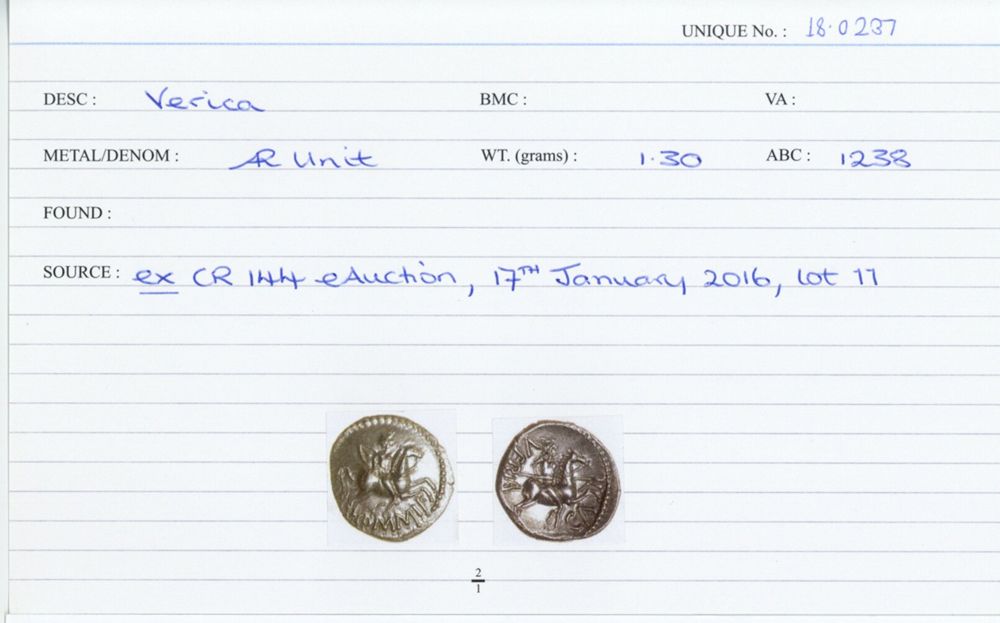 UNIQUE No. : 18·0237
DESC : Verica BMC : VA :
METAL/DENOM : AR Unit WT. (grams) : 1·30 ABC : 1238
FOUND :
SOURCE : ex CR 144 eAuction, 17TH January 2016, lot 11
VERICA
2
1